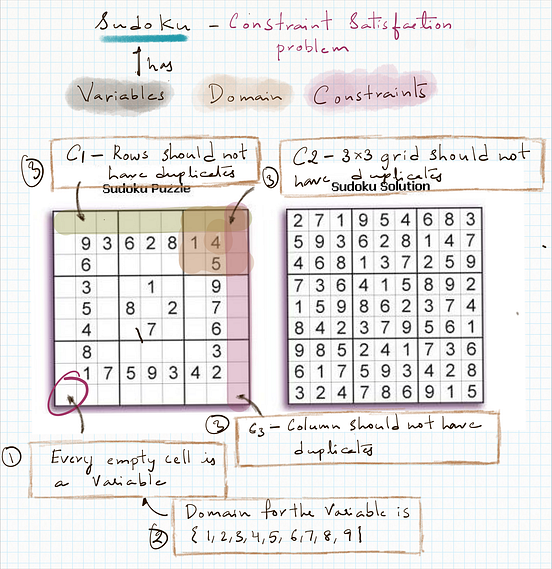 Sudoku - Constraint Satisfaction
problem
has
Variables Domain Constraints
3 C1 - Rows should not
have duplicates
3 C2 - 3×3 grid should not
have duplicates
Sudoku Puzzle
9 3 6 2 8 1 4
6 5
3 1 9
5 8 2 7
4 7 6
8 3
1 7 5 9 3 4 2
Sudoku Solution
2 7 1 9 5 4 6 8 3
5 9 3 6 2 8 1 4 7
4 6 8 1 3 7 2 5 9
7 3 6 4 1 5 8 9 2
1 5 9 8 6 2 3 7 4
8 4 2 3 7 9 5 6 1
9 8 5 2 4 1 7 3 6
6 1 7 5 9 3 4 2 8
3 2 4 7 8 6 9 1 5
3 C3 - Column should not have
duplicates
1 Every empty cell is
a Variable
2 Domain for the Variable is
{ 1, 2, 3, 4, 5, 6, 7, 8, 9 }